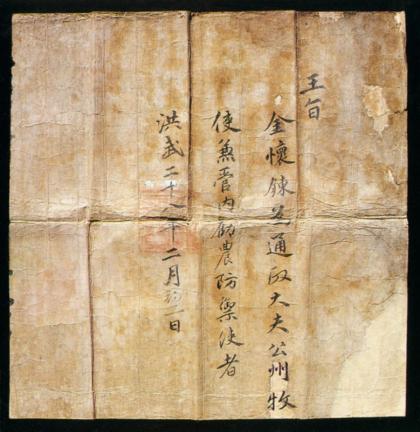 王旨
金懷鍊爲通政大夫公州牧
使兼管內勸農防禦使者
洪武二十八年二月初日